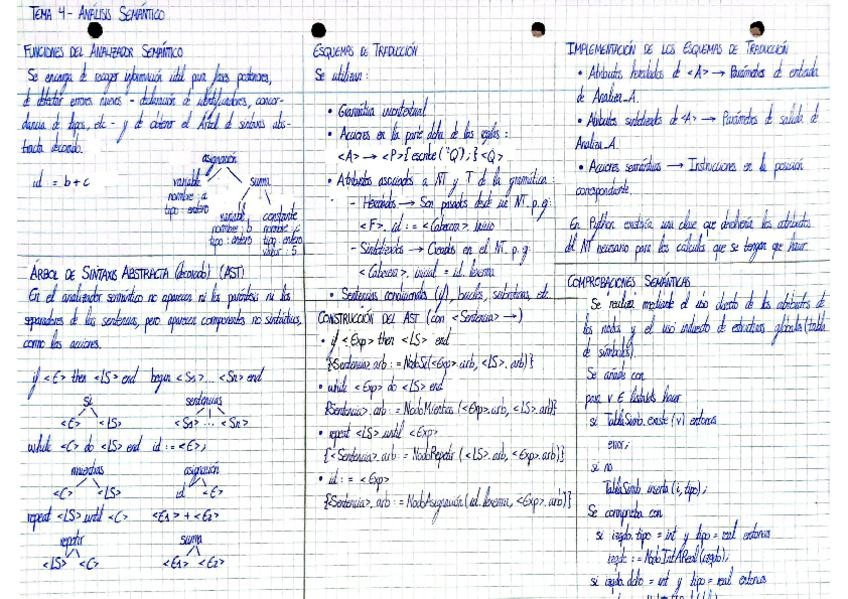 TEMA 4 - ANÁLISIS SEMÁNTICO
FUNCIONES DEL ANALIZADOR SEMÁNTICO
Se encarga de recoger información útil para fases posteriores,
de detectar errores nuevos - declaración de identificadores, concor-
dancia de tipos, etc - y de obtener el Árbol de sintaxis abs-
tracta decorado.
asignación
id = b + c
variable suma
nombre : a
tipo : entero
variable constante
nombre : b nombre : c
tipo : entero tipo : entero
valor : 5
ÁRBOL DE SINTAXIS ABSTRACTA (decorado) (AST)
En el analizador semántico no aparecen ni los paréntesis ni los
separadores de las sentencias, pero aparecen componentes no sintácticos,
como las acciones.
if <E> then <LS> end begin <S1> ... <Sn> end
si sentencias
<E> <LS> <S1> ... <Sn>
while <C> do <LS> end id := <E>;
mientras asignación
<C> <LS> id <E>
repeat <LS> until <C> <E1> + <E2>
repetir suma
<LS> <C> <E1> <E2>
ESQUEMAS DE TRADUCCIÓN
Se utilizan :
• Gramática incontextual
• Acciones en la parte dcha de las reglas :
<A> → <P>{ escribe ("Q"); } <Q>
• Atributos asociados a NT y T de la gramática :
- Heredados → Son pasados desde un NT. p.ej:
<F>. id := <Cabecera>. inicio
- Sintetizados → Creados en el NT. p.ej:
<Cabecera>. inicial = id. lexema
• Sentencias condicionales (if), bucles, subrutinas, etc.
CONSTRUCCIÓN DEL AST (con <Sentencia> →)
• if <Exp> then <LS> end
{<Sentencia>.arb := NodoSi(<Exp>.arb, <LS>.arb)}
• while <Exp> do <LS> end
{<Sentencia>.arb := NodoMientras (<Exp>.arb, <LS>.arb)}
• repeat <LS> until <Exp>
{<Sentencia>.arb := NodoRepetir (<LS>.arb, <Exp>.arb)}
• id := <Exp>
{<Sentencia>.arb := NodoAsignación (id.lexema, <Exp>.arb)}
IMPLEMENTACIÓN DE LOS ESQUEMAS DE TRADUCCIÓN
• Atributos heredados de <A> → Parámetros de entrada
de Analiza_A.
• Atributos sintetizados de <A> → Parámetros de salida de
Analiza_A.
• Acciones semánticas → Instrucciones en la posición
correspondiente.
En Python existiría una clase que devolvería los atributos
del NT necesario para los cálculos que se tengan que hacer.
COMPROBACIONES SEMÁNTICAS
Se realiza mediante el uso directo de los atributos de
los nodos y el uso indirecto de estructuras globales (tabla
de símbolos).
Se añade con
para v ∈ listaIds hacer
si TablaSimb.existe (v) entonces
error;
si no
TablaSimb.inserta (i, tipo);
Se comprueba con
si izqdo.tipo = int y tipo = real entonces
izqdo := NodoIntAReal (izqdo);
si = int y tipo = real entonces